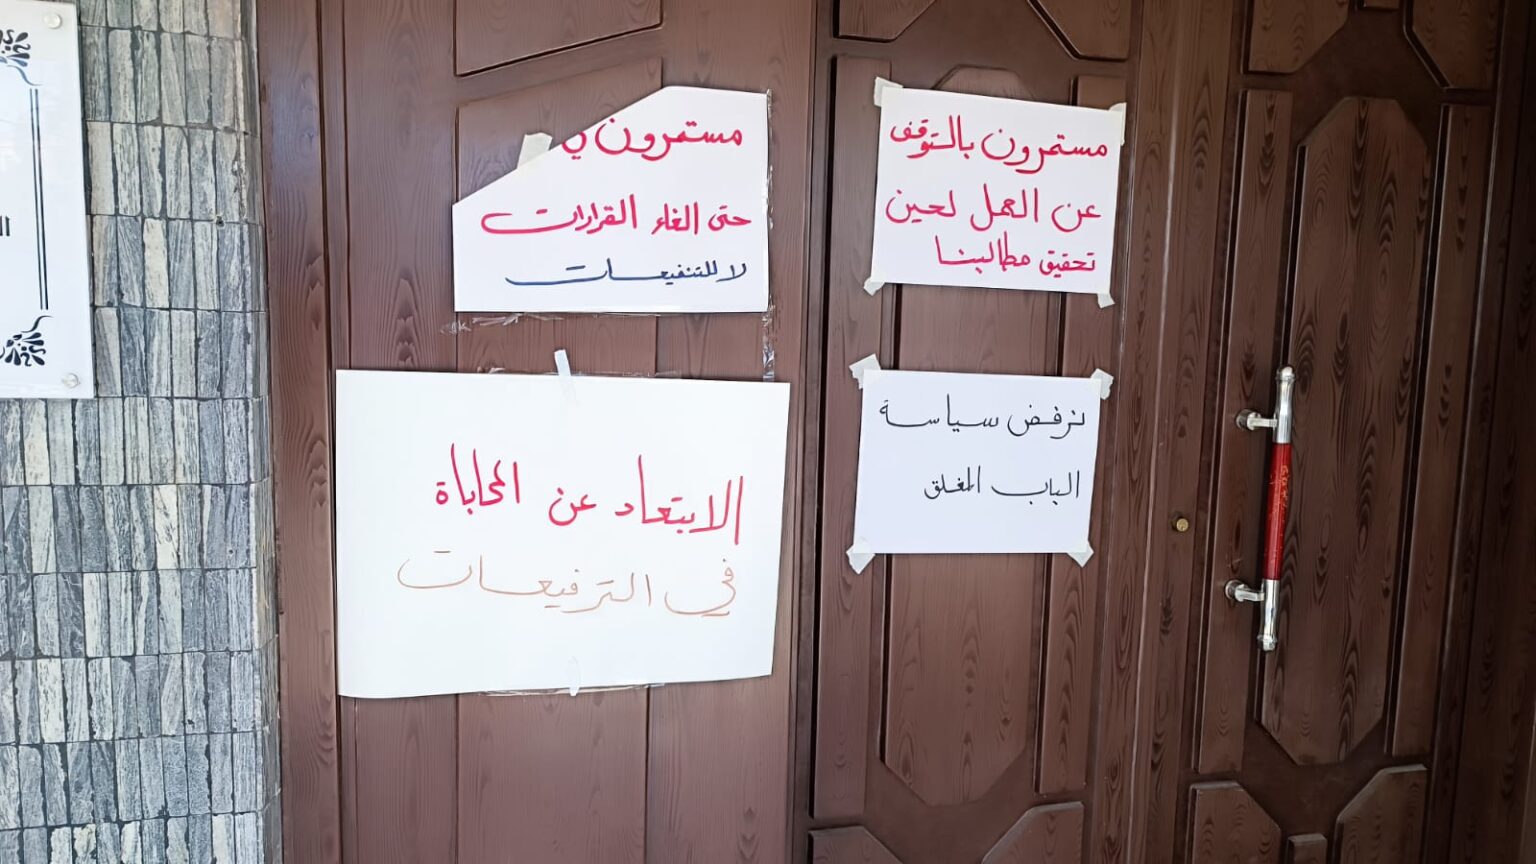 مستمرون
حتى الغاء القرارات
لا للتنفيعات
مستمرون بالتوقف
عن العمل لحين
تحقيق مطالبنا
الابتعاد عن المحاباة
في الترفيعات
نرفض سياسة
الباب المغلق